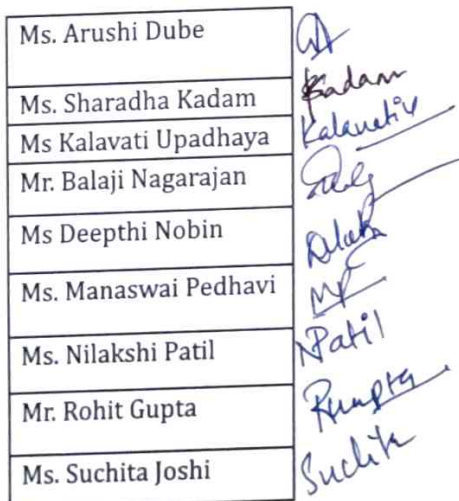 Ms. Arushi Dube
Ms. Sharadha Kadam Kadam
Ms Kalavati Upadhaya Kalavati
Mr. Balaji Nagarajan
Ms Deepthi Nobin
Ms. Manaswai Pedhavi MP
Ms. Nilakshi Patil NPatil
Mr. Rohit Gupta RGupta
Ms. Suchita Joshi Suchita